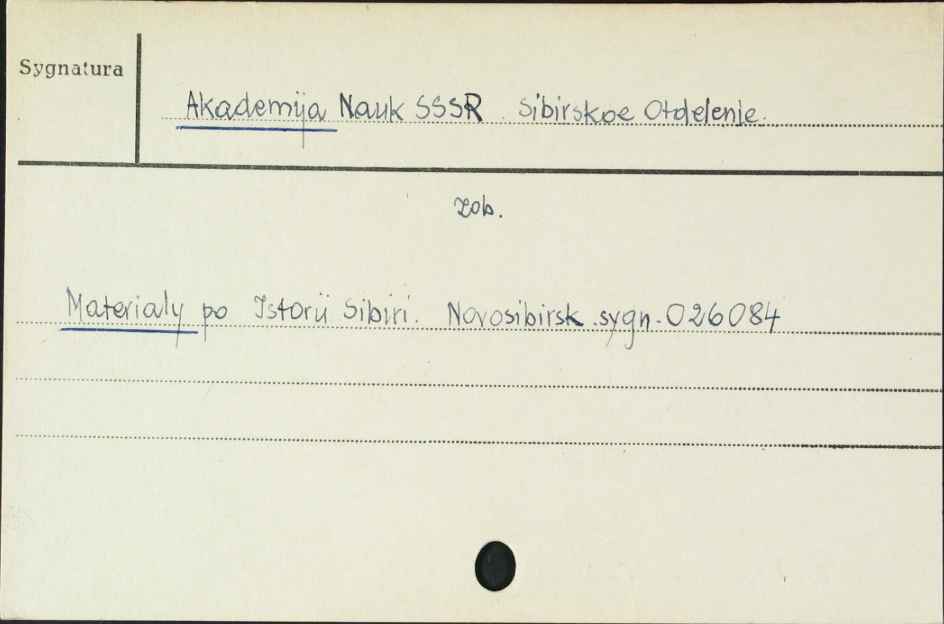 Sygnatura
Akademija Nauk SSSR. Sibirskoe Otdelenie.
zob.
Materialy po Istorii Sibiri. Novosibirsk. sygn. 026084